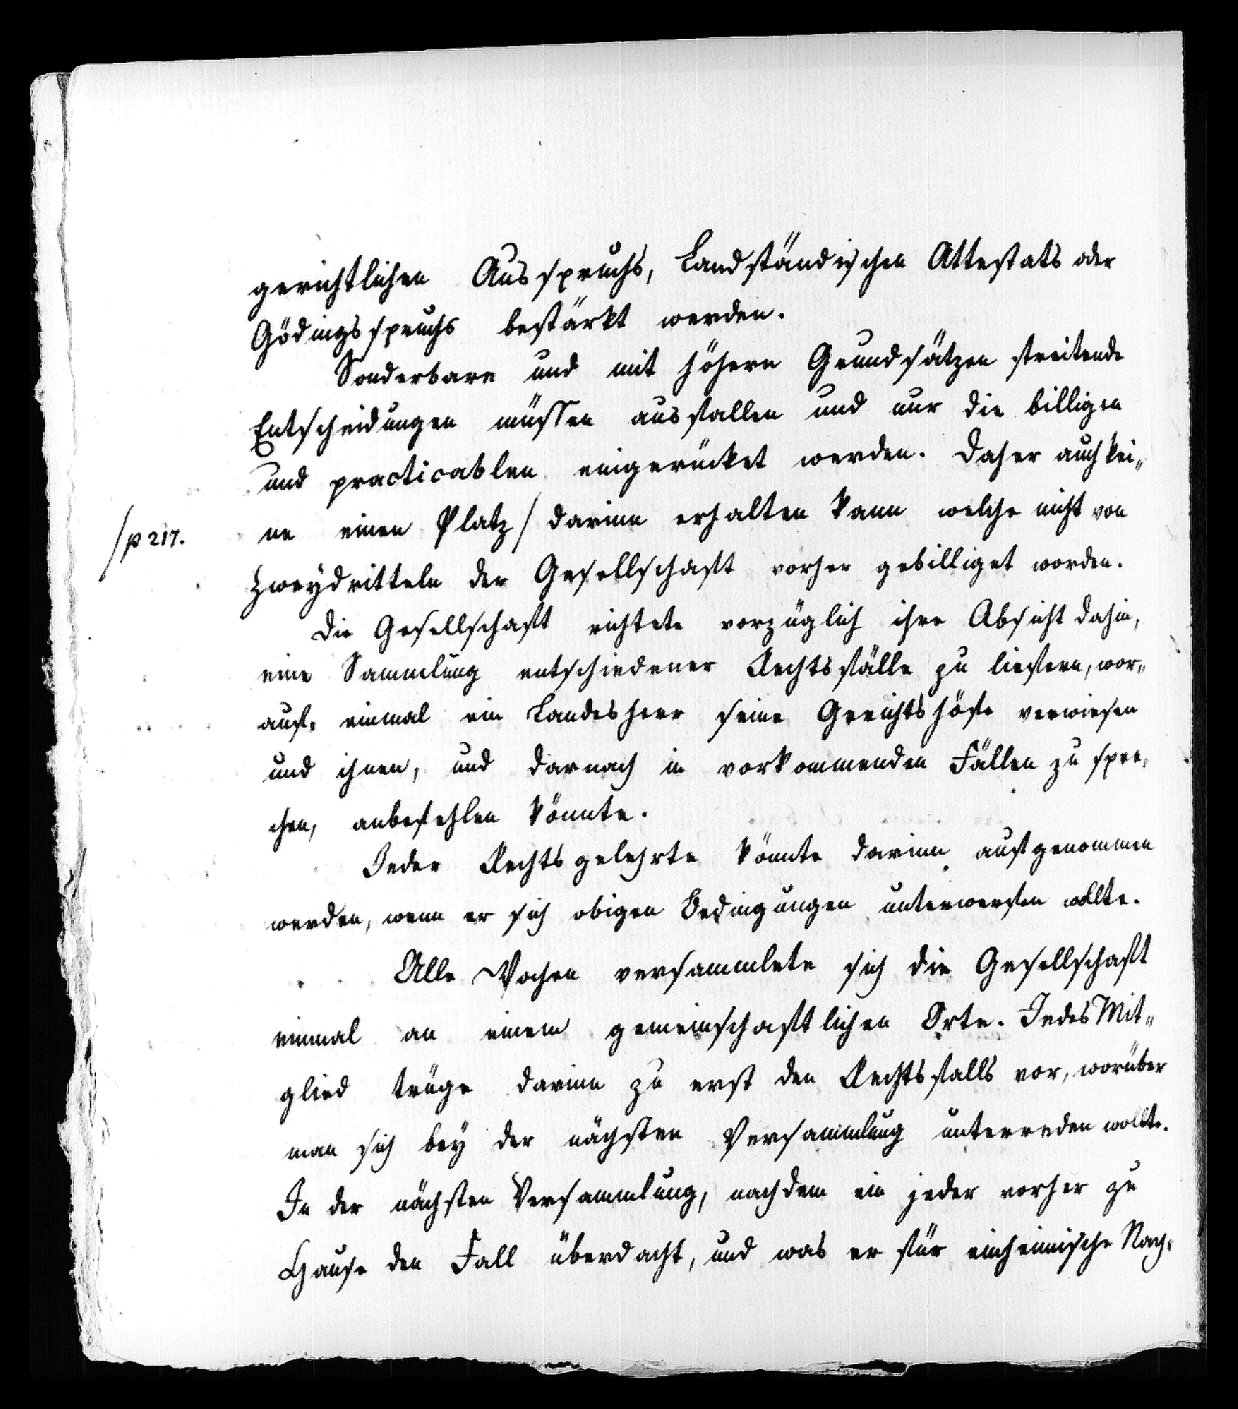 gerichtlichen Ausspruchs, Landständischen Attestats oder
Gödingsspruchs bestärkt werden.
Sonderbare und mit höhern Grundsätzen streitende
Entscheidungen müssen ausfallen und nur die billigen
und practicablen eingerücket werden. Daher auch kei„
ne einen Platz / darinn erhalten kann welche nicht von
/p 217.
Zweydritteln der Gesellschaft vorher gebilliget worden.
Die Gesellschaft richtete vorzüglich ihre Absicht dahin,
eine Sammlung entschiedener Rechtsfälle zu liefern, wor„
auf einmal ein Landesherr seine Gerichtshöfe verwiesen
und ihnen, und darnach in vorkommenden Fällen zu spre„
chen, anbefehlen könnte.
Jeder Rechtsgelehrte könnte darinn aufgenommen
werden, wenn er sich obigen Bedingungen unterwerfen wollte.
Alle Wochen versammlete sich die Gesellschaft
einmal an einem gemeinschaftlichen Orte. Jedes Mit„
glied trüge darinn zu erst den Rechtsfalls vor, worüber
man sich bey der nächsten Versammlung unterreden wollte.
In der nächsten Versammlung, nachdem ein jeder vorher zu
Hause den Fall überdacht, und was er für einheimische Nach„